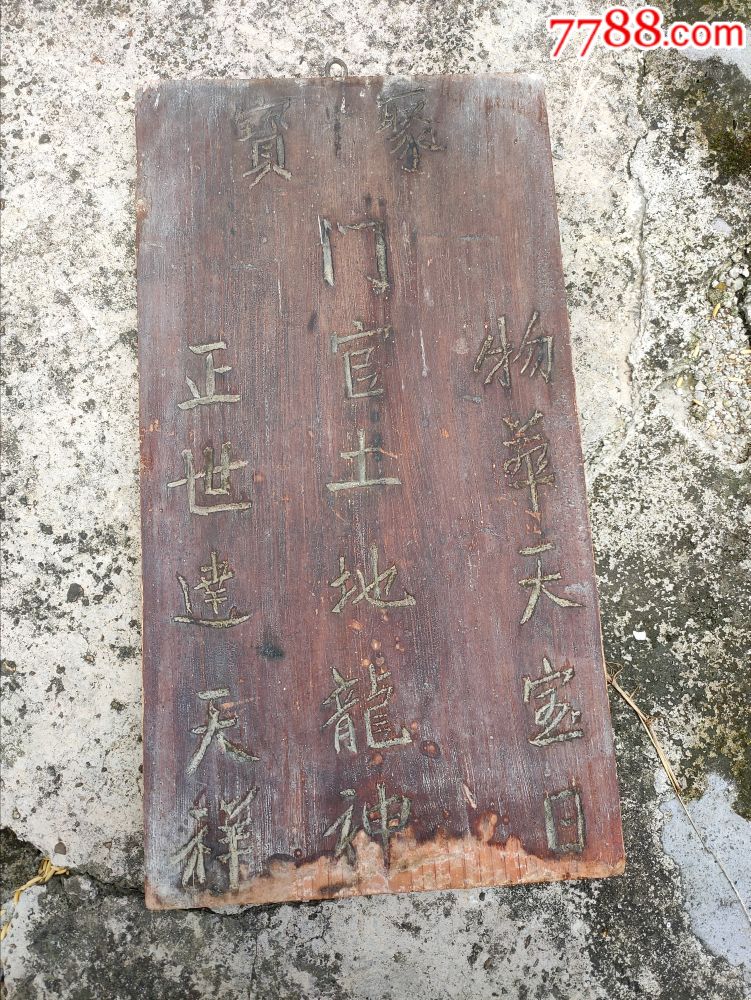 7788.com
聚寶
物華天宝日
门官土地龍神
正世達天祥